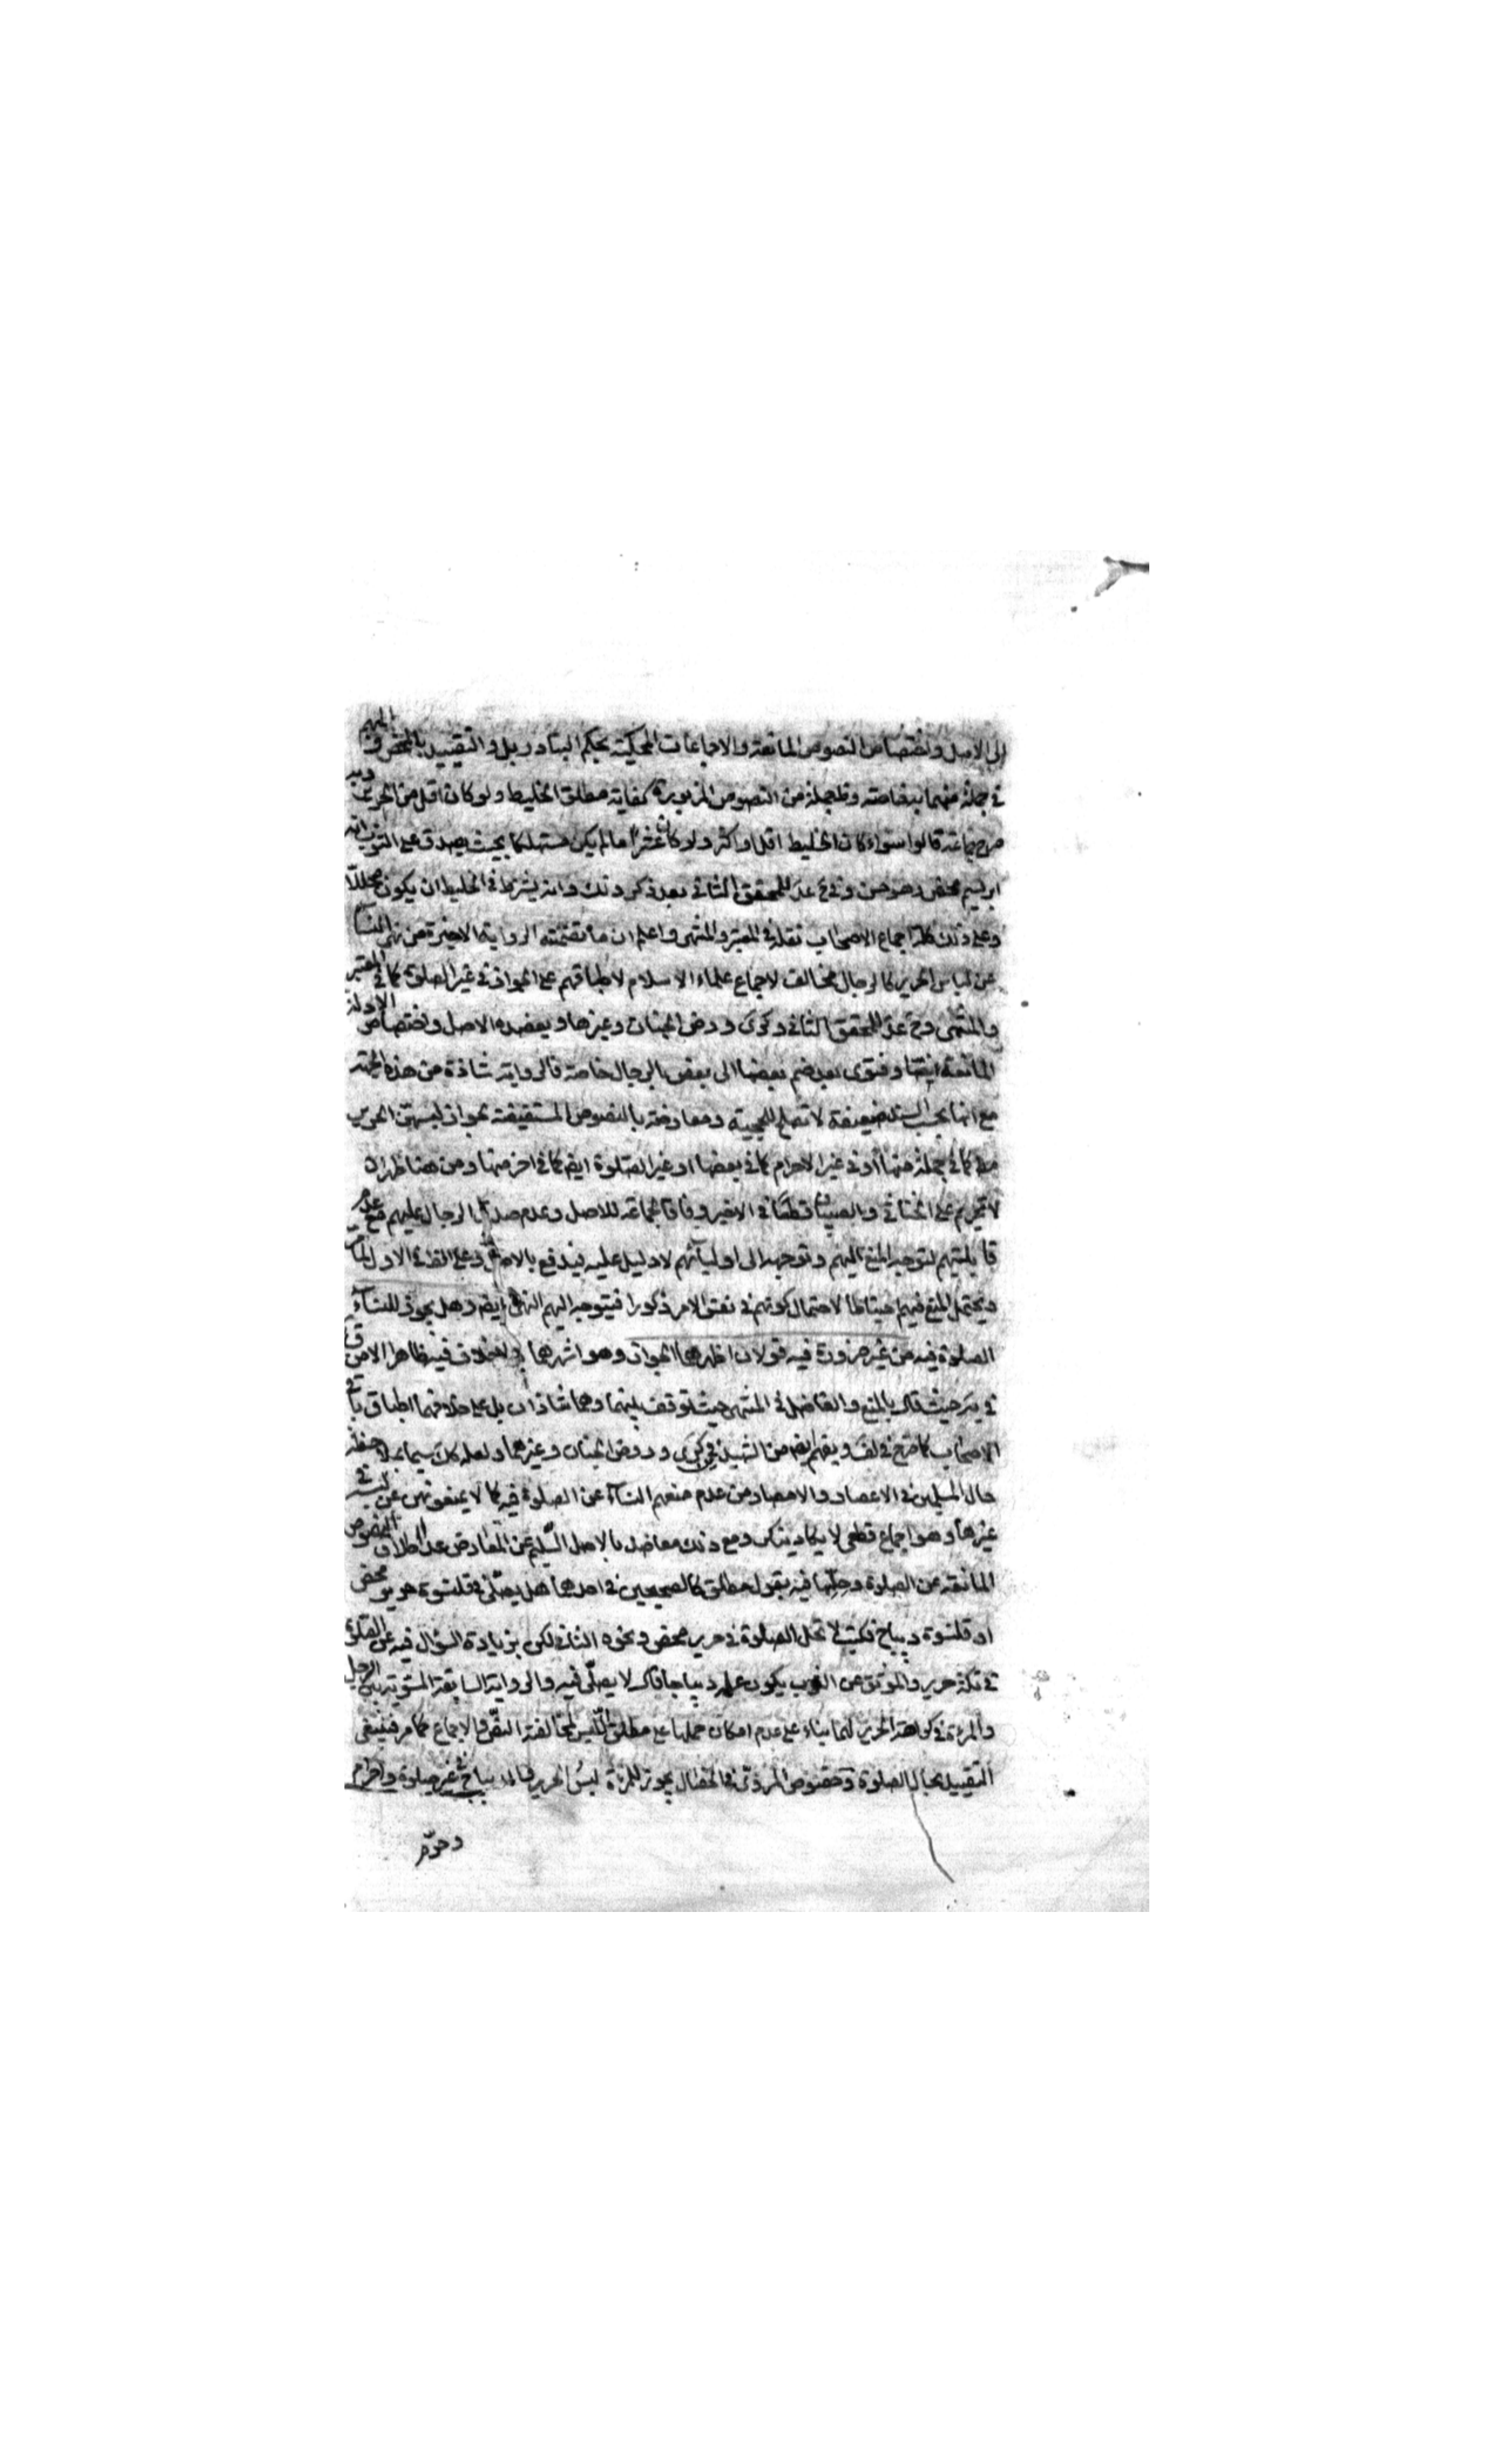 الى الاصل واختصاص النصوص المانعة والاجماعات المحكية بحكم التبادر بل والتقييد بالمحض والمبهم
في جملة منهما بيضاعته وظ جملة من النصوص المزبورة كفاية مطلق الخليط ولو كان اقل من الحرير وبه
صرح جماعة قالوا سواء كان الخليط اقل او اكثر ولو كان عشرا ما لم يكن مستهلكا بحيث يصدق على الثوب انه
ابريسم محض وهو حسن وفي عد للمحقق الثاني بعد ذكر ذلك وانه يشترط في الخليط ان يكون محللا
وعلى ذلك كله اجماع الاصحاب نقله في المعتبر والمنتهى واعلم ان ما تضمنته الرواية الاخيرة من نهي النساء
عن لباس الحرير كالرجال مخالف لاجماع علماء الاسلام لاطباقهم على الجواز في غير الصلوة كما في المعتبر
والمنتهى وح عد للمحقق الثاني وكرى وروض الجنان وغيرها ويعضده الاصل واختصاص الادلة
المانعة ايضا وفتوى بعد ضم بعضها الى بعض بالرجال خاصة فالرواية شاذة من هذه الجهة
مع انها بحسب السند ضعيفة لا تصلح للحجية ومعارضة بالنصوص المستفيضة بجواز لبسهن الحرير
مط كما في جملة منها او في غير الاحرام كما في بعضها او غير الصلوة ايضا كما في اخر منها ومن هنا ظهر ان
لا تحريم على الخناثى والصبيان قطعا في الاخير وفاقا لجماعة للاصل وعدم صدق الرجال عليهم مع عدم
قابليتهم لتوجه المنع اليهم وتوجهه الى اوليائهم لا دليل عليه فيندفع بالاصل وعلى الظ في الاول لما مر
ويحتمل المنع فيهم احتياطا لاحتمال كونهم في نفس الامر ذكورا فيتوجه اليهم النهي ايضا وهل يجوز للنساء
الصلوة فيه من غير ضرورة فيه قولان اظهرهما الجواز وهو اشهرهما ولا خلاف فيه ظاهرا الا من ق
في يه حيث قال بالمنع والفاضل في المنتهى حيث توقف بينهما وهما شاذان بل على خلافهما اطباق باقي
الاصحاب كما صرح في لف ويفهم ايضا من الشهيد في كرى وروض الجنان وغيرهما ولعله كك سيما بملاحظة
حال المسلمين في الاعصار والامصار من عدم منعهم النساء عن الصلوة فيه كما لا يمنعونهن عن لبسه في
غيرها وهو اجماع قطعي لا يكاد ينكر ومع ذلك معاضد بالاصل السليم عن المعارض عدا اطلاق النصوص
المانعة عن الصلوة وحلها فيه بقول مطلق كالصحيحين في احدهما هل يصلى في قلنسوة حرير محض
او قلنسوة ديباج فكتب لا تحل الصلوة في حرير محض ونحوه الثاني لكن بزيادة السؤال فيه عن الصلوة
في تكة حرير والموثق عن الثوب يكون علمه ديباجا قال لا يصلى فيه والرواية السابقة المسوية بين الرجل
والمرءة في كراهة الحرير لهما بناء على عدم امكان حملها على مطلق اللبس لمخالفته النص والاجماع كما مر فينبغي
التقييد بحال الصلوة وخصوص المروي في الخصال يجوز للمرءة لبس الحرير والديباج في غير صلوة واحرام
وحرم